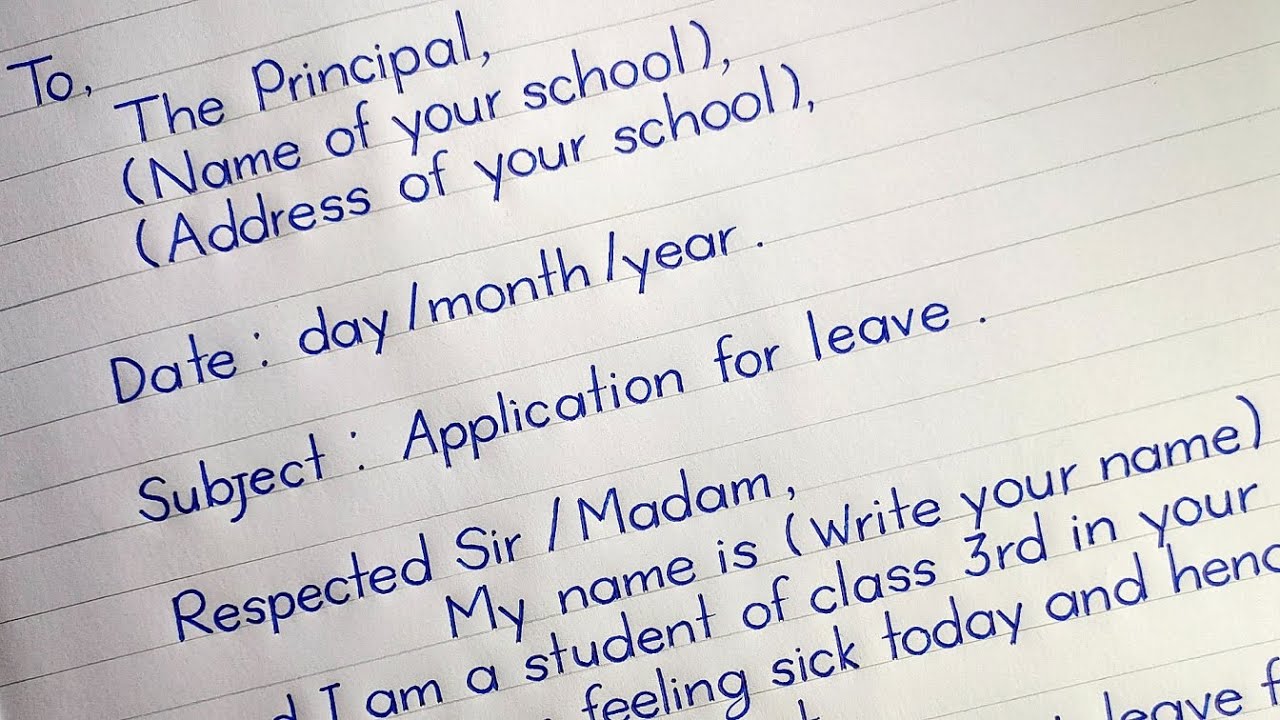 To,
The Principal,
(Name of your school),
(Address of your school),
Date : day/month/year.
Subject : Application for leave.
Respected Sir/Madam,
My name is (Write your name)
I am a student of class 3rd in your
feeling sick today and
leave